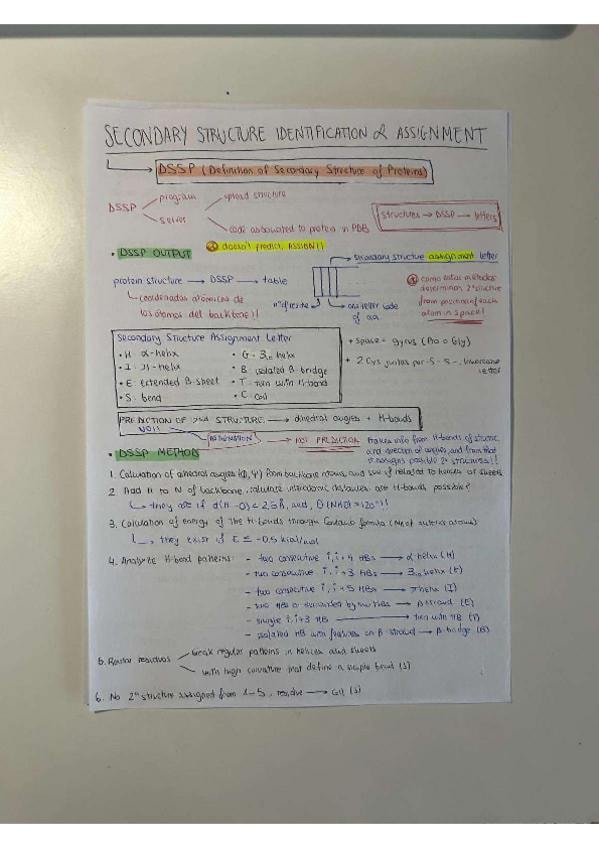 SECONDARY STRUCTURE IDENTIFICATION & ASSIGNMENT
DSSP (Definition of Secondary Structure of Proteins)
DSSP
program
server
upload structure
code associated to protein in PDB
structures → DSSP → letters
• DSSP OUTPUT
doesn't predict, ASSIGN!!
→ secondary structure assignment letter
protein structure → DSSP → table
coordenadas atómicas de
los átomos del backbone!!
nº of residue
one letter code
of aa
como estos métodos
determinan 2ª structure
from position of each
atom in space!
Secondary Structure Assignment Letter
• H α-helix
• G 3₁₀ helix
• I π-helix
• B isolated β-bridge
• E extended β-sheet
• T turn with H-bond
• S bend
• C coil
+ space = gyrus (Pro o Gly)
+ 2 Cys juntas por -S-S-, lowercase
letter
PREDICTION OF 2nd STRUCTURE → dihedral angles + H-bonds
NO!!
ASSIGNATION → NOT PREDICTION
takes info from H-bonds of
and of angles, and from that
it assigns possible 2ª structures!!
• DSSP METHOD
1. Calculation of dihedral angles (Φ, Ψ) from backbone atoms and see if related to helices or sheets
2. Add H to N of backbone, calculate interatomic distances are H-bonds possible?
→ they are if d(H-O) < 2,5 Å, and, θ(NHO) > 120°!!
3. Calculation of energy of the H-bonds through Coulomb formula
→ they exist if E ≤ -0,5 kcal/mol
4. Analyze H-bond patterns:
- two consecutive i, i+4 HBs → α helix (H)
- two consecutive i, i+3 HBs → 3₁₀ helix (G)
- two consecutive i, i+5 HBs → π helix (I)
- two HBs or surrounded by two HBs → β strand (E)
- single i, i+3 HB → turn with HB (T)
- isolated HB with features on β strand → β-bridge (B)
residues
break regular patterns in helices and sheets
with high curvature that define a bend (S)
6. No 2ª structure assigned from 1-5, residue →